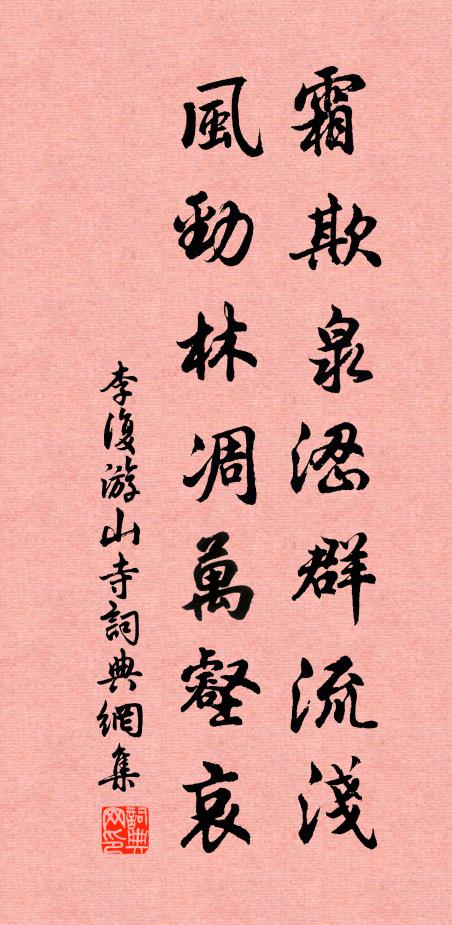 霜欺泉涩群流淺
風勁林凋萬壑哀
李復游山寺詞典網集
詞典网印